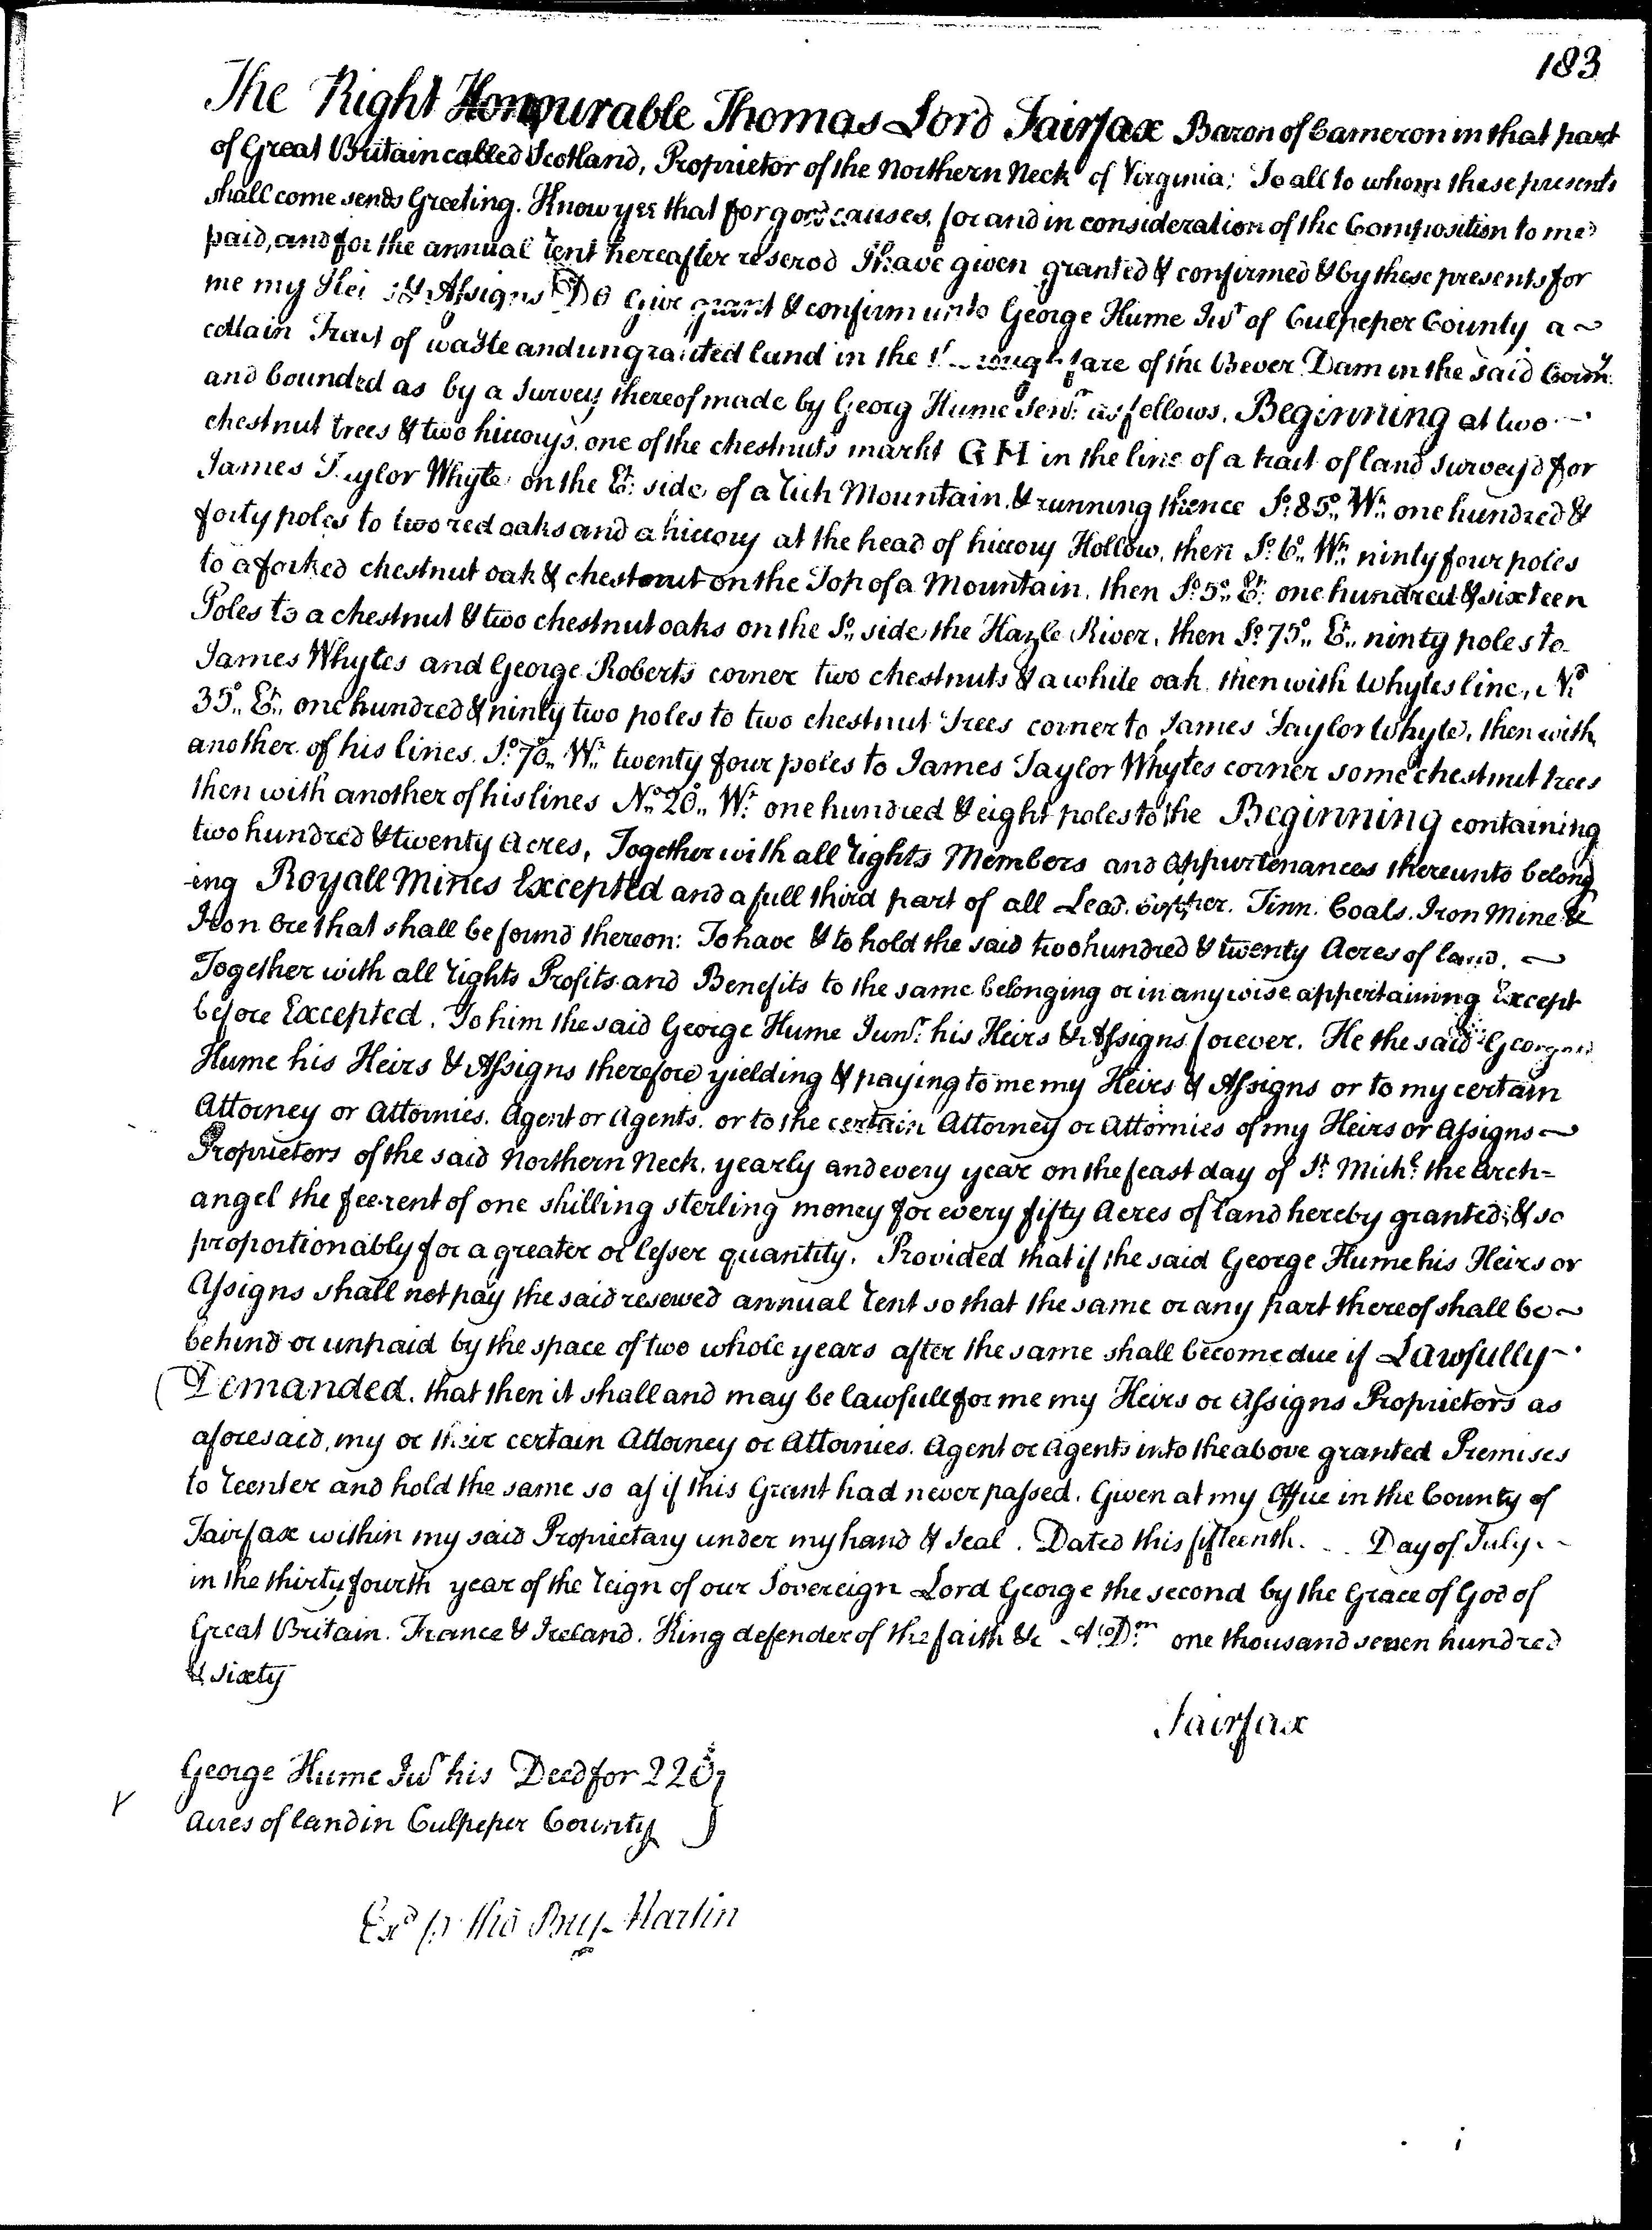 183
The Right Honourable Thomas Lord Fairfax Baron of Cameron in that part
of Great Britain called Scotland, Proprietor of the Northern Neck of Virginia; To all to whom these presents
shall come sends Greeting. Know yee that for good causes, for and in consideration of the Composition to me
paid, and for the annual rent hereafter reserved I have given granted & confirmed & by these presents for
me my Heirs & Assigns Do Give grant & confirm unto George Hume Junr of Culpeper County a ~
certain Tract of waste and ungranted land in the fare of the Bever Dam in the said County.
and bounded as by a Survey thereof made by Georg Hume Senr: as follows. Beginning at two
chestnut trees & two hiccorys, one of the chestnuts markt GH in the line of a tract of land surveyd for
James Taylor Whyte on the Et: side of a rich Mountain, & running thence So: 85o,, Wt: one hundred &
forty poles to two red oaks and a hiccory at the head of hiccory Hollow, then So: 6o,, Wt: ninty four poles
to a forked chestnut oak & chestnut on the Top of a Mountain, then So: 5o,, Et: one hundred & sixteen
Poles to a chestnut & two chestnut oaks on the So,, side the Hazle River, then So: 75o,, Et,, ninty poles to
James Whytes and George Roberts corner two chestnuts & a white oak, then with Whytes line, No
35o,, Et,, one hundred & ninty two poles to two chestnut Trees corner to James Taylor Whyte, then with
another of his lines, So: 70o,, Wt: twenty four poles to James Taylor Whytes corner some chestnut trees
then with another of his lines No,, 20o,, Wt: one hundred & eight poles to the Beginning containing
two hundred & twenty Acres, Together with all rights Members and Appurtenances thereunto belong
-ing Royall Mines Excepted and a full third part of all Lead, Copper, Tinn, Coals, Iron Mine &
Iron Ore that shall be found thereon: To have & to hold the said two hundred & twenty Acres of land, ~
Together with all rights Profits and Benefits to the same belonging or in any wise appertaining Except
before Excepted. To him the said George Hume Junr: his Heirs & Assigns forever. He the said George
Hume his Heirs & Assigns therefore yielding & paying to me my Heirs & Assigns or to my certain
Attorney or Attornies, Agent or Agents, or to the certain Attorney or Attornies of my Heirs or Assigns ~
Proprietors of the said Northern Neck, yearly and every year on the feast day of St: Michl: the Arch=
angel the fee rent of one shilling sterling money for every fifty Acres of land hereby granted, & so
proportionably for a greater or lesser quantity. Provided that if the said George Hume his Heirs or
Assigns shall not pay the said reserved annual rent so that the same or any part thereof shall be ~
behind or unpaid by the space of two whole years after the same shall become due if Lawfully
Demanded, that then it shall and may be lawfull for me my Heirs or Assigns Proprietors as
aforesaid, my or their certain Attorney or Attornies, Agent or Agents into the above granted Premises
to reenter and hold the same so as if this Grant had never passed. Given at my Office in the County of
Fairfax within my said Proprietary under my hand & Seal. Dated this fifteenth Day of July
in the thirty fourth year of the reign of our Sovereign Lord George the second by the Grace of God of
Great Britain, France & Ireland, King defender of the faith &c Ao Dm one thousand seven hundred
& sixty
Fairfax
George Hume Junr his Deed for 220
Acres of land in Culpeper County
Exd pr Tho Bry Martin